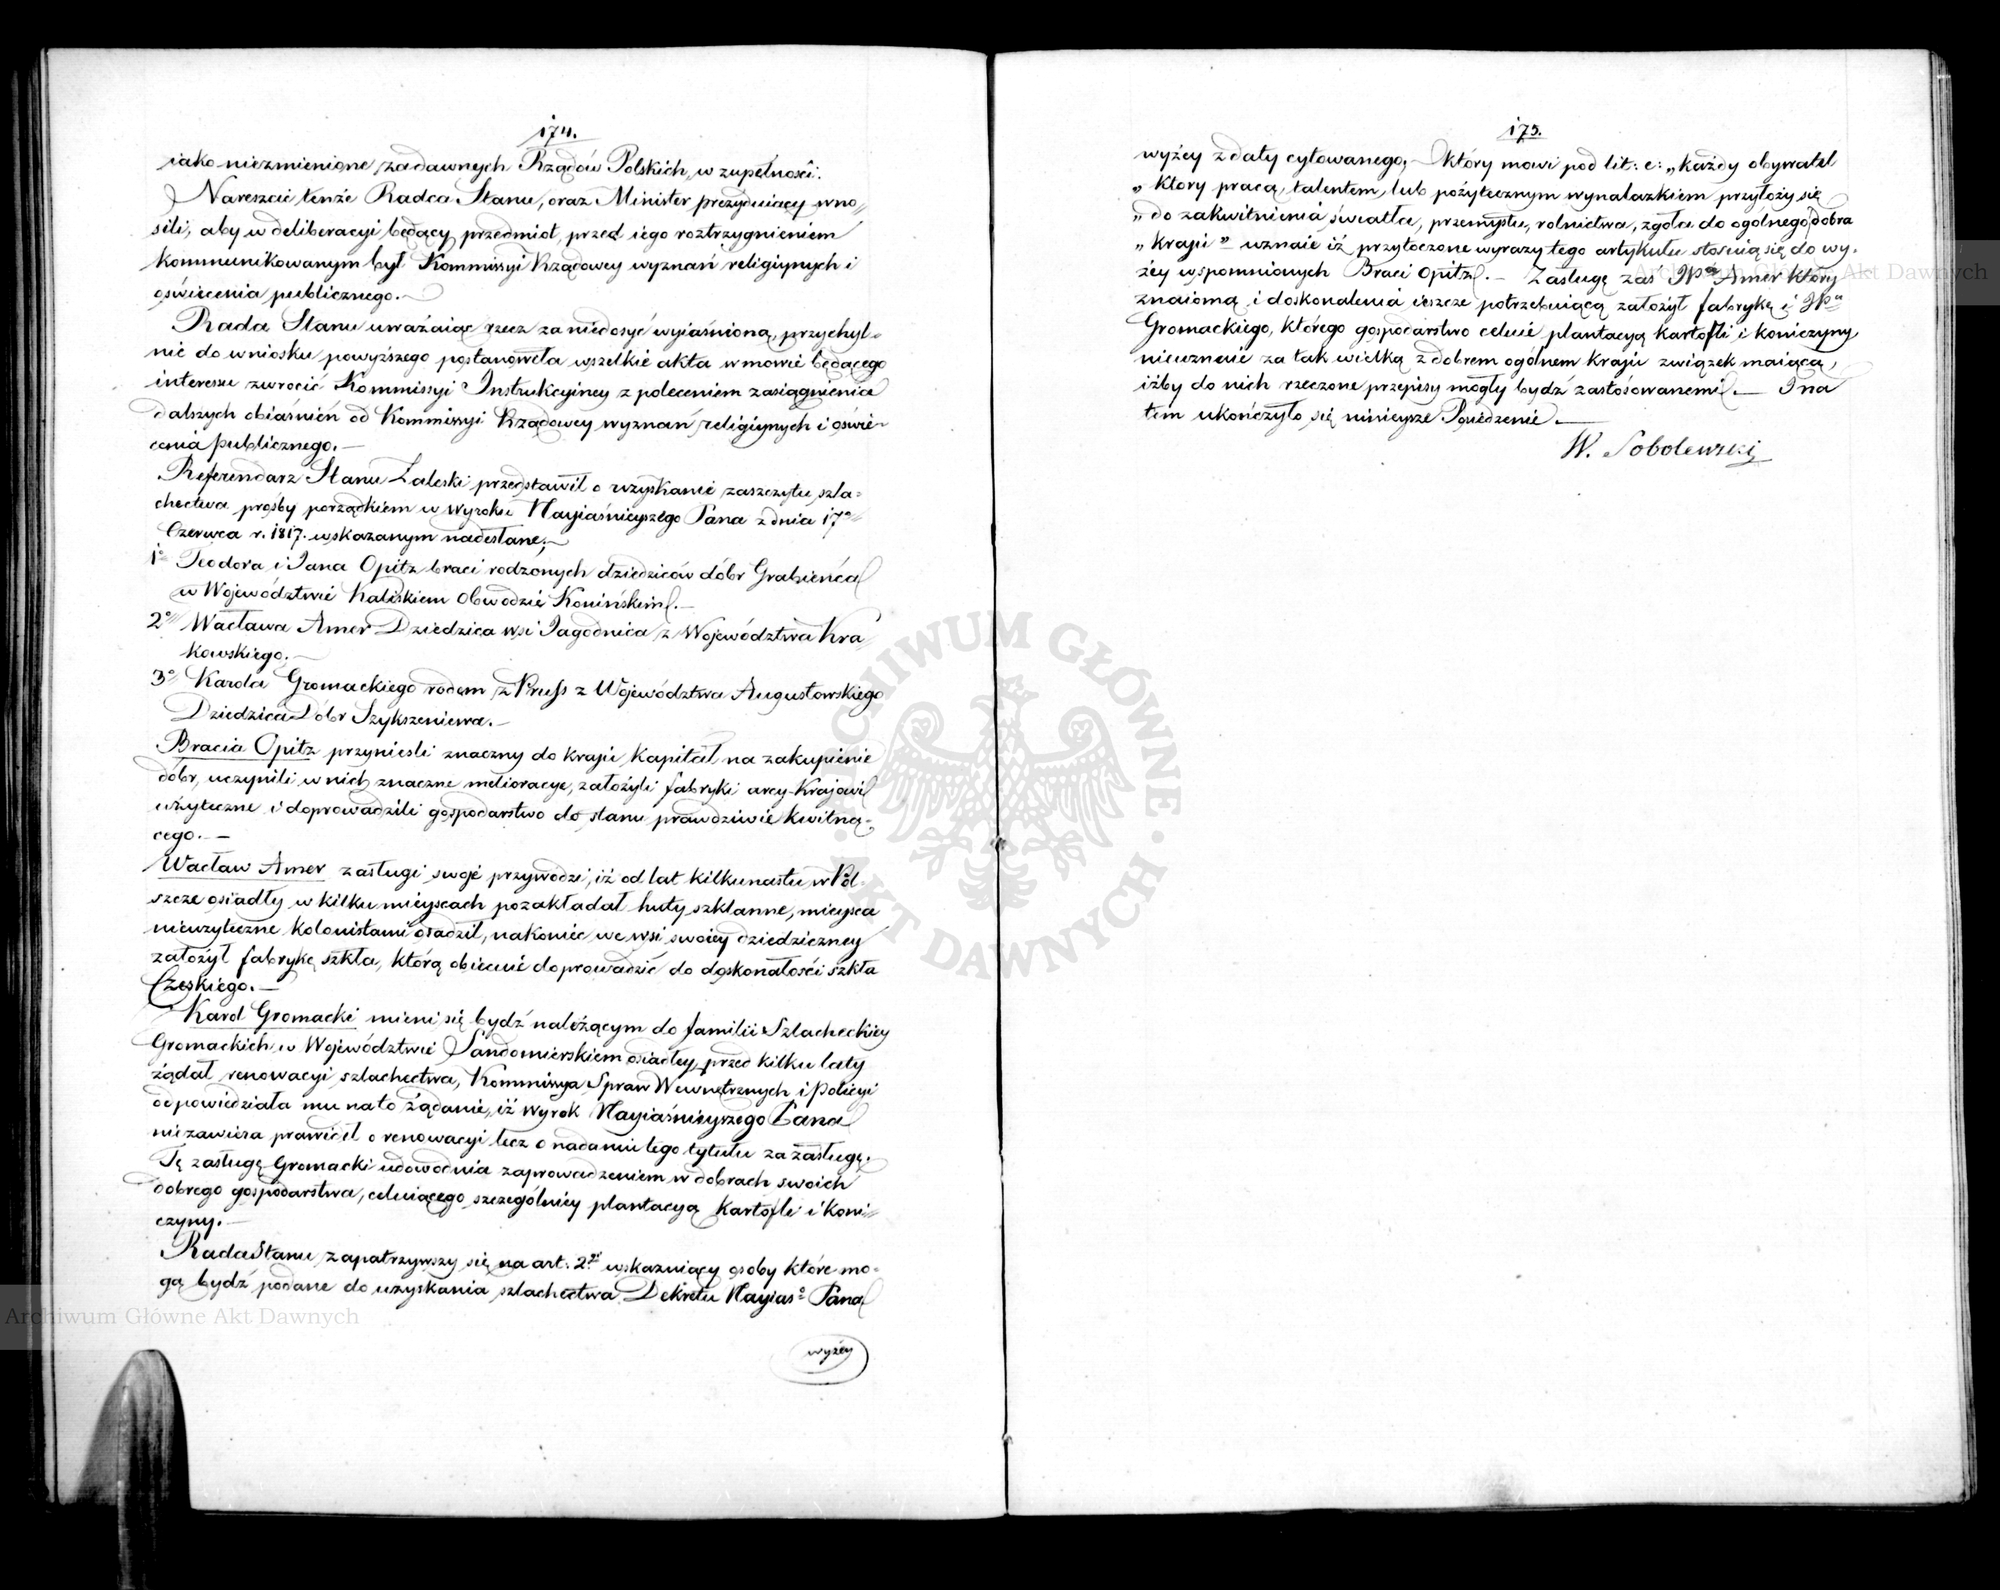 174.
iako niezmienione za dawnych Rządów Polskich, w zupełności.
Nareszcie tenże Radca Stanu, oraz Minister prezyduiący wno=
sili, aby w deliberacyi będący przedmiot, przed iego roztrzygnieniem
kommunikowanym był Kommissyi Rządowey wyznań religiynych i
oświecenia publicznego.—
Rada Stanu uważaiąc rzecz za niedosyć wyiaśnioną, przychyl=
nie do wniosku powyższego postanowiła wszelkie akta w mowie będącego
interessu zwrocić Kommissyi Instrukcyiney z poleceniem zasiągnienia
dalszych obiaśnień od Kommissyi Rządowey wyznań religiynych i oświe=
cenia publicznego.—
Referendarz Stanu Zaleski przedstawił o uzyskanie zaszczytu szla=
chectwa prośby porządkiem w Wyroku Nayiaśnieyszego Pana z dnia 17º
Czerwca r. 1817. wskazanym nadesłane;—
1º Teodora i Jana Opitz braci rodzonych dziedziców dóbr Grabieńca
w Województwie Kaliskiem Obwodzie Konińskiem.—
2º Wacława Amer Dziedzica wsi Jagodnica z Województwa Kra
kowskiego.—
3º Karola Gromackiego rodem z Pruss z Województwa Augustowskiego
Dziedzica Dóbr Szykszeniewa.—
Bracia Opitz przynieśli znaczny do kraju kapitał na zakupienie
dóbr, uczynili w nich znaczne melioracye, założyli fabryki arcy-Krajowi
użyteczne i doprowadzili gospodarstwo do stanu prawdziwie kwitną=
cego.—
Wacław Amer zasługi swoje przywodzi, iż od lat kilkunastu w Pol=
szcze osiadły w kilku mieyscach pozakładał huty szklanne, mieysca
nieużyteczne kolonistami osadził, nakoniec we wsi swoiey dziedziczney
założył fabrykę szkła, którą obiecuie doprowadzić do doskonałości szkła
Czeskiego.—
Karol Gromacki mieni się bydź należącym do familii Szlacheckiey
Gromackich w Województwie Sandomierskiem osiadłey, przed kilku laty
żądał renowacyi szlachectwa, Kommissya Spraw Wewnętrznych i Policyi
odpowiedziała mu na to żądanie, iż Wyrok Nayiaśnieyszego Pana
nie zawiera prawideł o renowacyi lecz o nadaniu tego tytułu za zasługę.
Tę zasługę Gromacki udowodnia zaprowadzeniem w dobrach swoich
dobrego gospodarstwa, celuiącego szczególniey plantacyą Kartofli i koni=
czyny.—
Rada Stanu zapatrzywszy się na art. 2gi wskazuiący osoby które mo=
gą bydź podane do uzyskania szlachectwa Dekretu Nayiasº Pana
wyżey
175.
wyżey z daty cytowanego,— Który mowi pod lit: c: „każdy obywatel
„ ktory pracą, talentem, lub pożytecznym wynalazkiem przyłoży się
„ do zakwitnienia światła, przemysłu, rolnictwa, zgoła do ogolnego dobra
„ kraju” uznaie iż przytoczone wyrazy tego artykułu stosuią się do wy=
żey wspomnionych Braci Opitz.— Zasługę zaś JPa Amer który
znaiomą i doskonalenia ieszcze potrzebuiącą założył fabrykę i JPa
Gromackiego, którego gospodarstwo celuie plantacyą kartofli i koniczyny
nieuznaie za tak wielką z dobrem ogolnem kraju związek maiącą,
iżby do nich rzeczone przepisy mogły bydź zastosowanemi.— I na
tem ukończyło się ninieysze Posiedzenie.—
W. Sobolewski
ARCHIWUM GŁÓWNE · AKT DAWNYCH ·
Archiwum Główne Akt Dawnych
Archiwum Główne Akt Dawnych